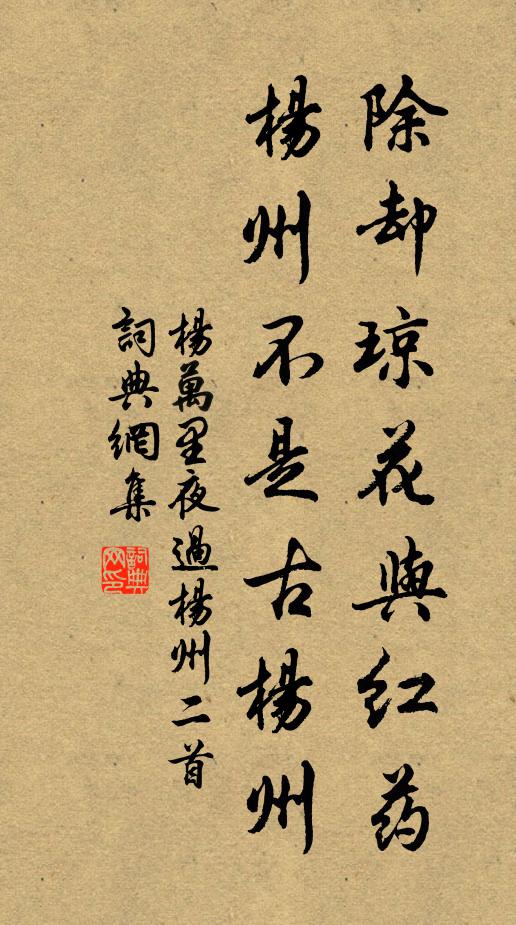 除却琼花與红药
楊州不是古楊州
楊萬里夜過楊州二首
詞典網集
詞典網印